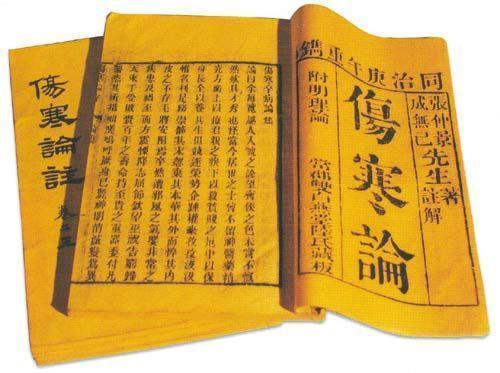 同治庚午重鐫
張仲景先生著
成無己先生註解
傷寒論
附明理論
常郡雙白燕堂陸氏藏板
傷寒卒病論集
論曰余每覽越人入虢之診望齊侯之色未嘗不慨
然歎其才秀也怪當今居世之士曾不留神醫藥精
究方術上以療君親之疾下以救貧賤之厄中以保
身長全以養其生但競逐榮勢企踵權豪孜孜汲汲
惟名利是務崇飾其末忽棄其本華其外而悴其內
皮之不存毛將安附焉卒然遭邪風之氣嬰非常之
疾患及禍至而方震慄降志屈節欽望巫祝告窮歸
天束手受敗賚百年之壽命持至貴之重器委付凡
醫恣其所措咄嗟嗚呼厥身已斃神明消滅變為異
傷寒論註
卷二三